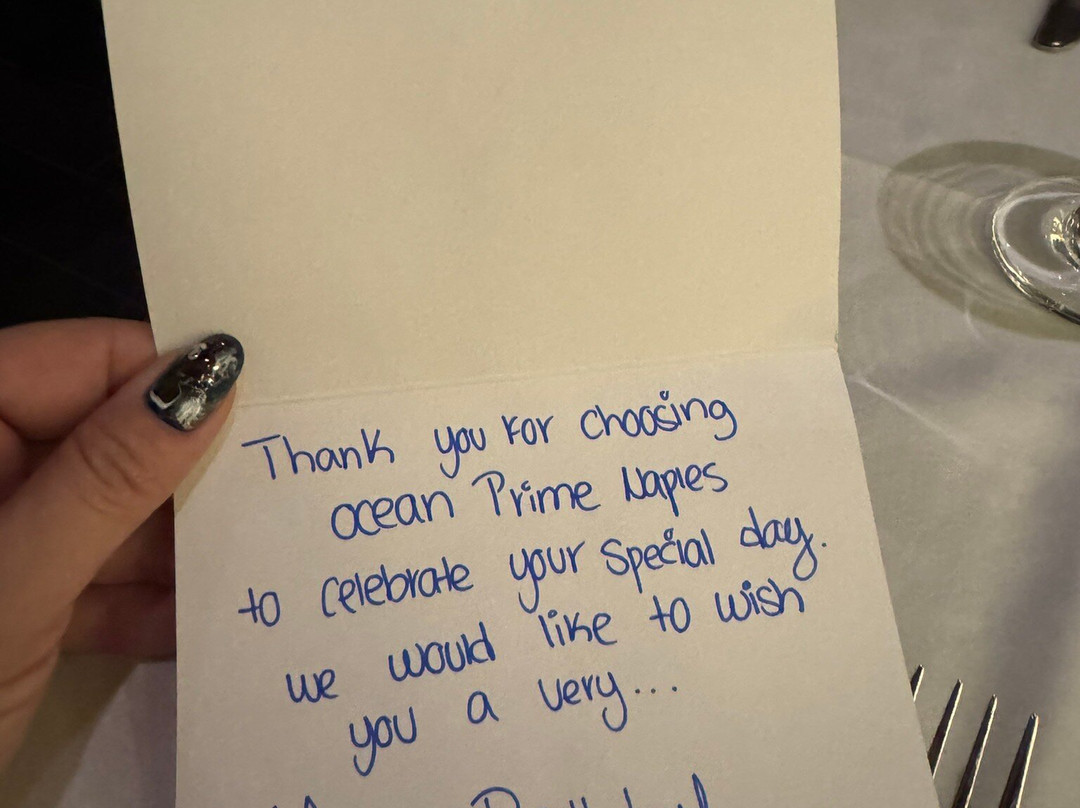 Thank you for choosing
ocean Prime Naples
to celebrate your special day.
we would like to wish
you a very...